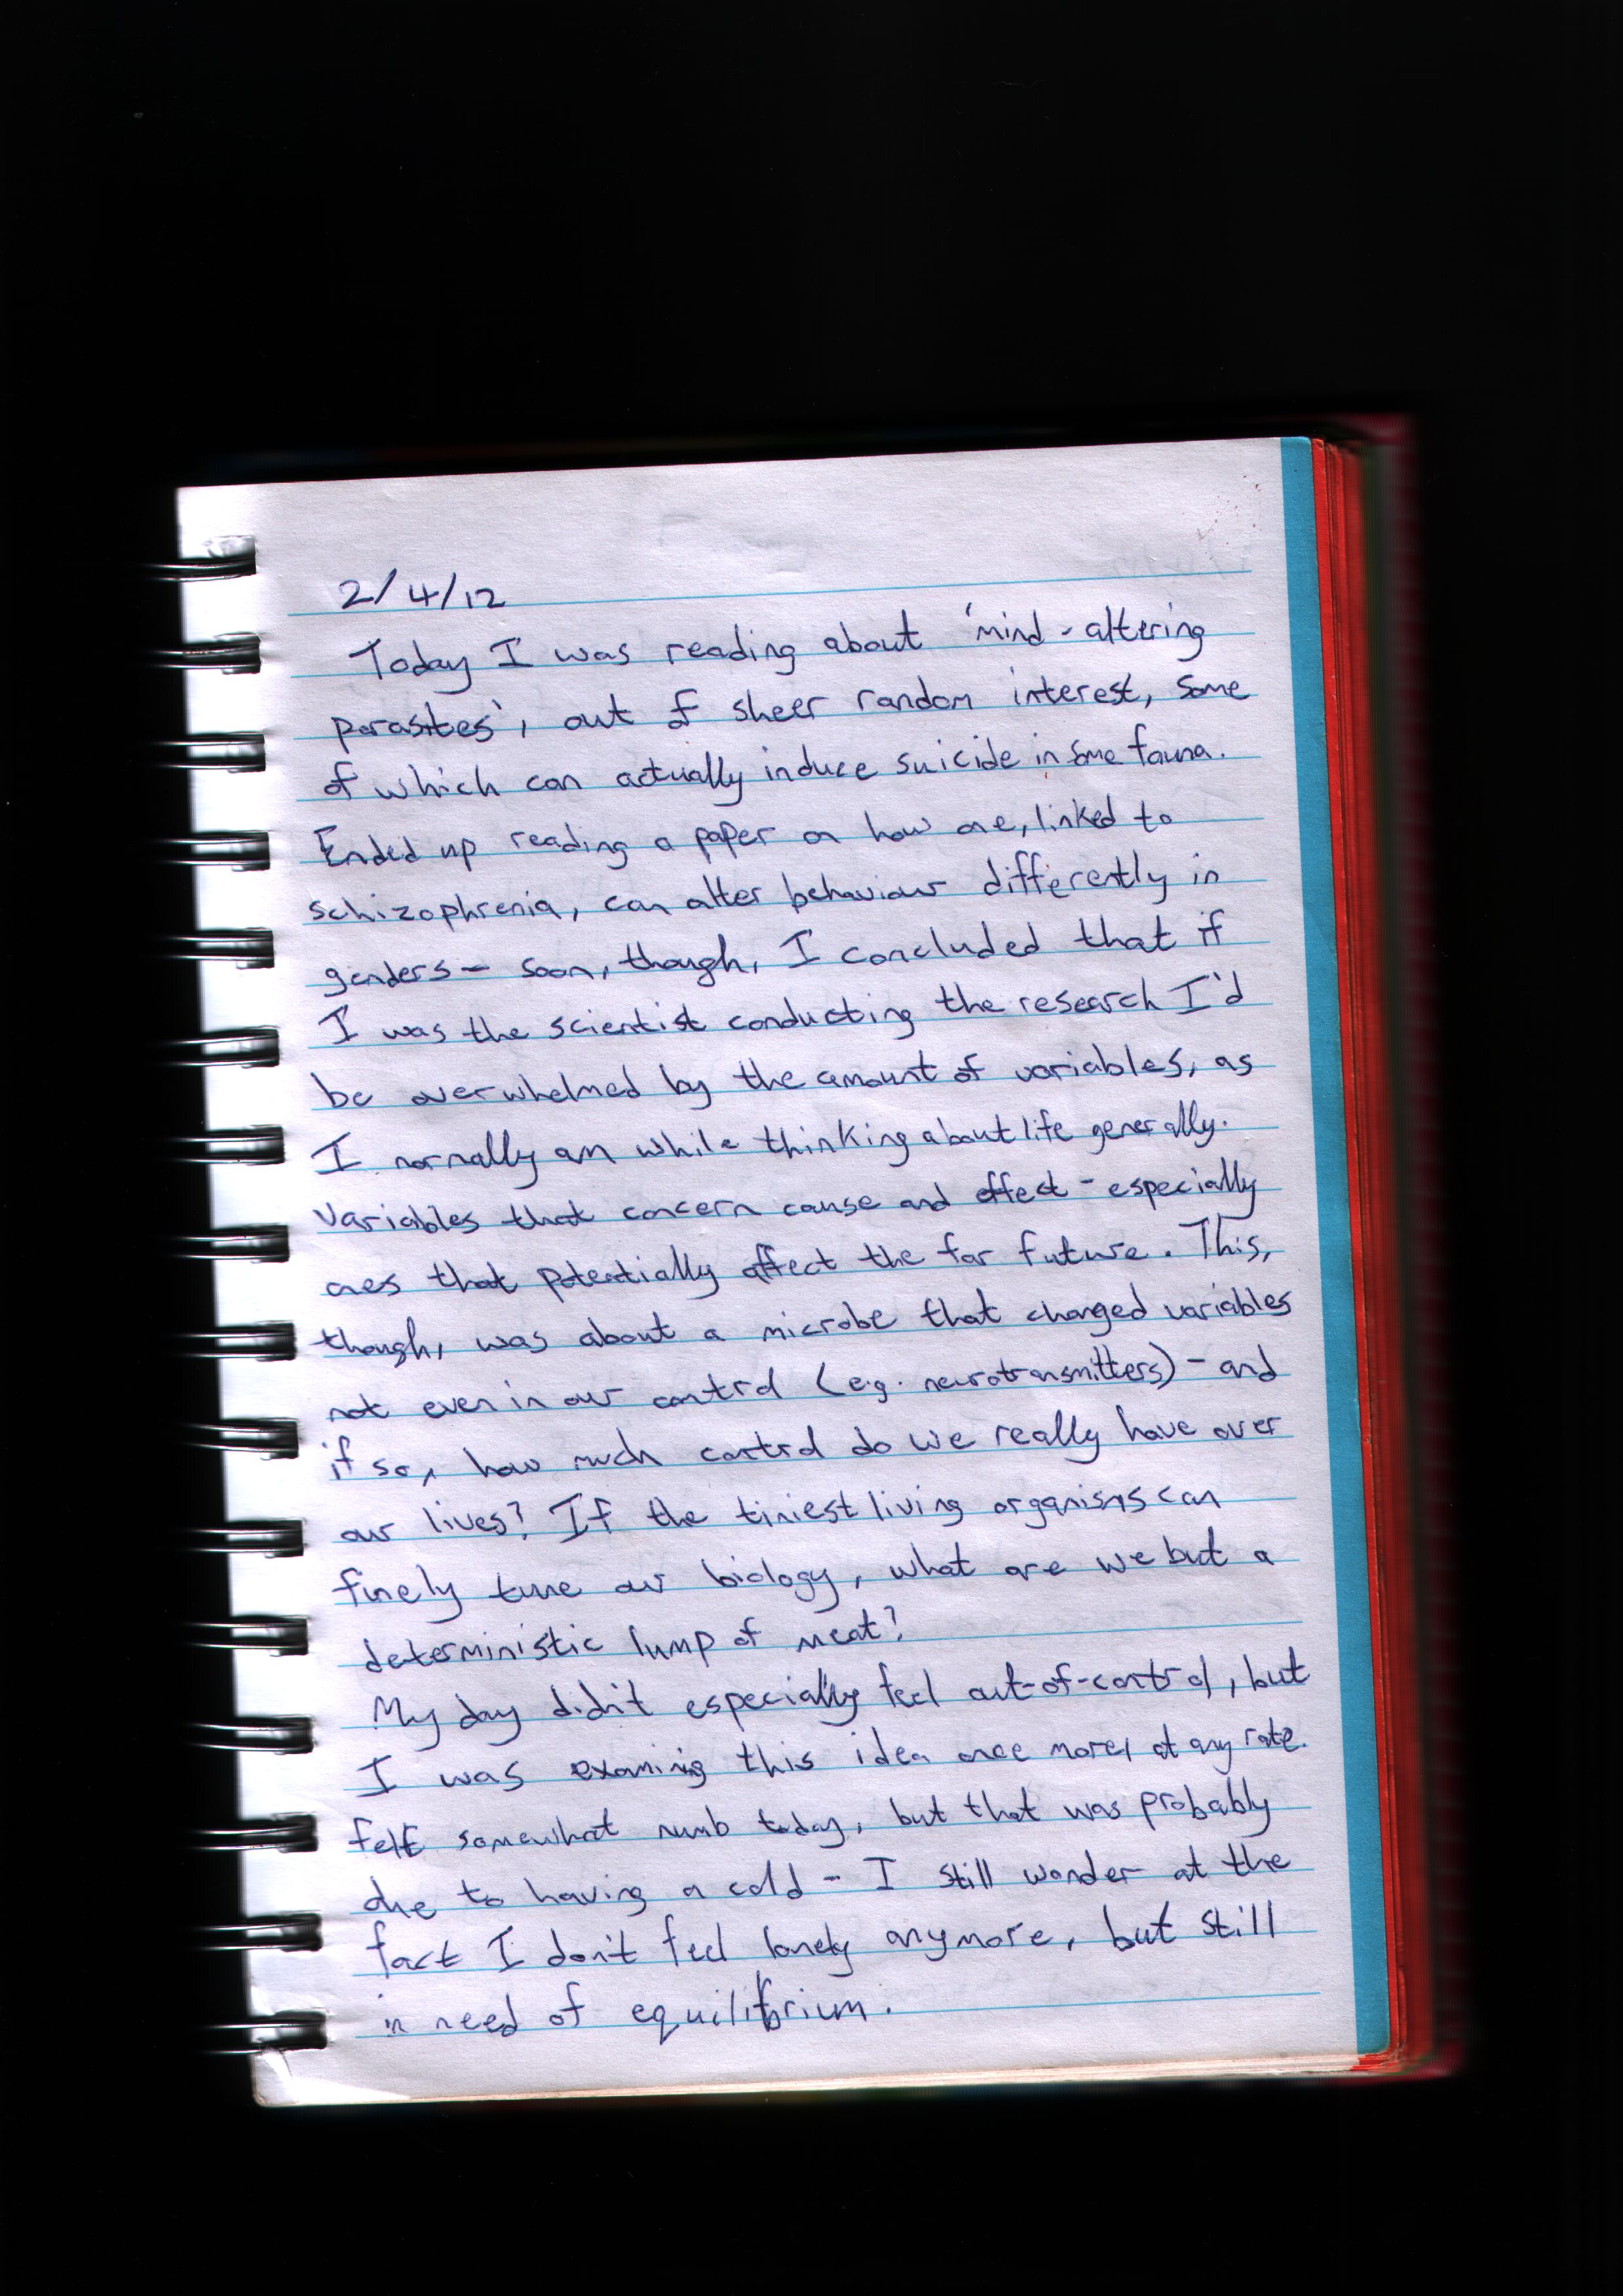 2/4/12
Today I was reading about 'mind-altering
parasites', out of sheer random interest, some
of which can actually induce suicide in some fauna.
Ended up reading a paper on how one, linked to
schizophrenia, can alter behaviour differently in
genders - soon, though, I concluded that if
I was the scientist conducting the research I'd
be overwhelmed by the amount of variables, as
I normally am while thinking about life generally.
Variables that concern cause and effect - especially
ones that potentially affect the far future. This,
though, was about a microbe that changed variables
not even in our control (e.g. neurotransmitters) - and
if so, how much control do we really have over
our lives? If the tiniest living organisms can
finely tune our biology, what are we but a
deterministic lump of meat?
My day didn't especially feel out-of-control, but
I was examining this idea once more, at any rate.
felt somewhat numb today, but that was probably
due to having a cold - I still wonder at the
fact I don't feel lonely anymore, but still
in need of equilibrium.